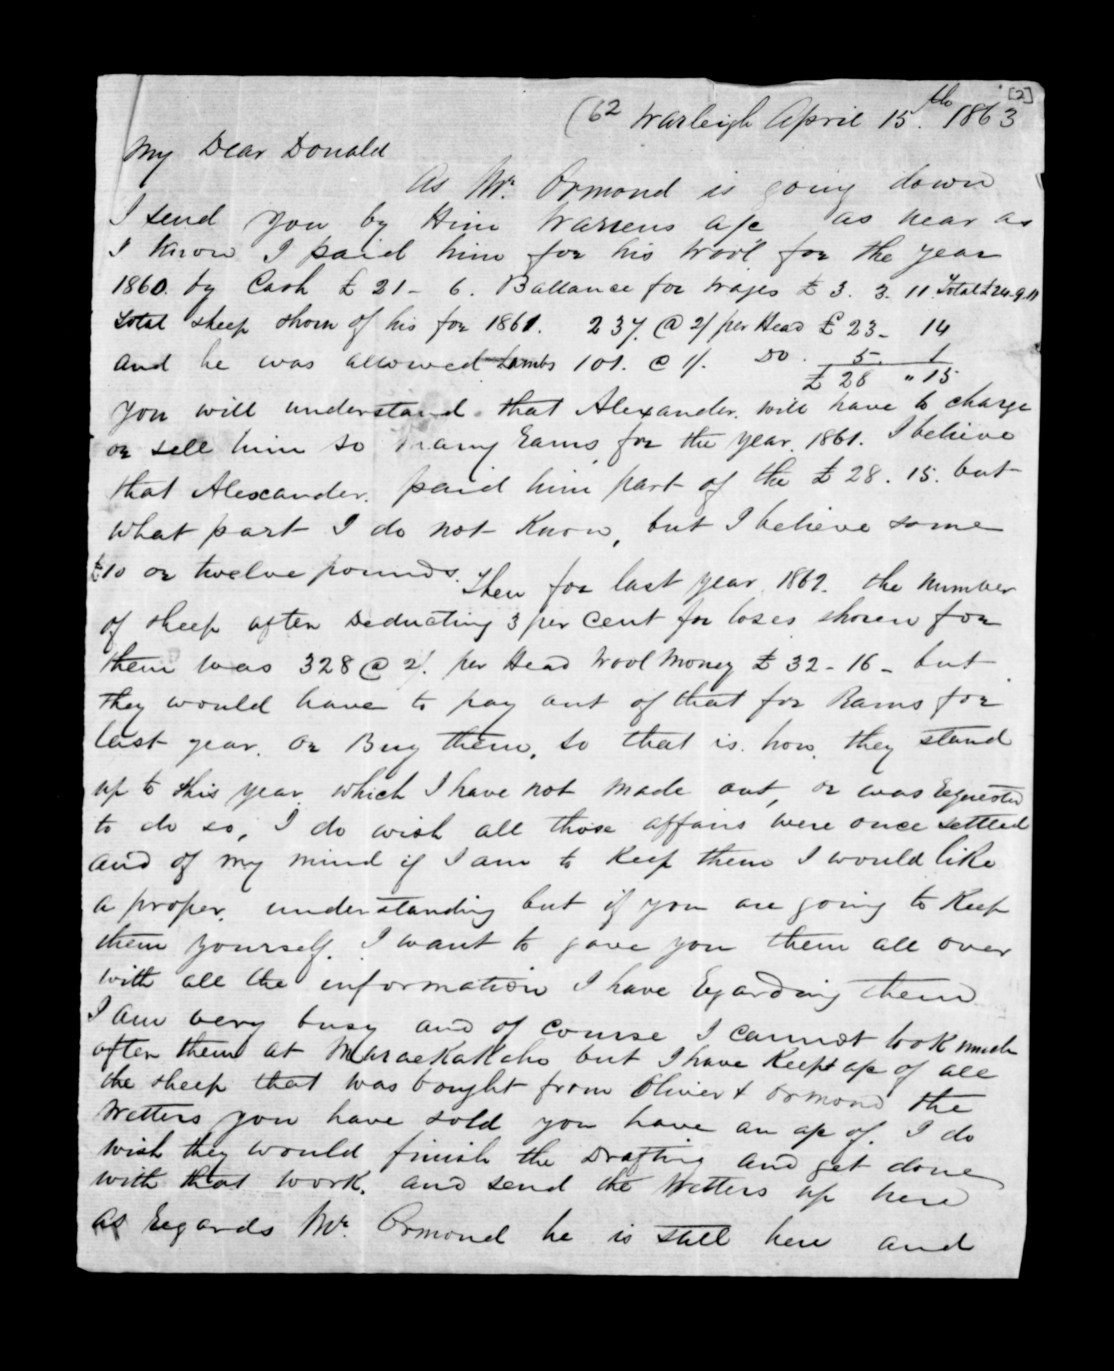 [2]
(62 Warleigh April 15.th 1863
My Dear Donald
As Mr. Ormond is going down
I send you by Him Warrens a/c as near as
I Know I paid him for his wool for the year
1860. by Cash £ 21 - 6. Ballance for Wages £ 3. 3. 11 Total £ 24.9.11
Total sheep shorn of his for 1861. 237. @ 2/ per Head £ 23 - 14
and he was allowed Lambs 101. @ 1/. Do. 5. 1
£ 28 " 15
You will understand that Alexander. will have to charge
or sell him so many Rams for the year. 1861. I believe
that Alexander. paid him part of the £ 28. 15. but
what part I do not Know, but I believe some
£10 or twelve pounds. Then for last year. 1862. the number
of sheep after Deducting 3 per Cent for loses shorn for
them was 328 @ 2/. per Head Wool Money £ 32 - 16 - but
they would have to pay out of that for Rams for
last year. Or Buy them, so that is. how. they stand
up to this year which I have not made out, or was Requested
to do so, I do wish all those affairs were once settled
and of my mind if I am to Keep them I would like
a proper. understanding but if you are going to Keep
them yourself. I want to gave you them all over
with all the information I have Regarding them
I am very busy and of course I cannot look much
after them at Maraekakaho but I have Keept ap of all
the sheep that was bought from Oliver & Ormond the
Wetters you have sold you have an ap of. I do
wish they would finish the Drafting and get done
with that work. and send the Wetters up here
as Regards Mr. Ormond he is still here and